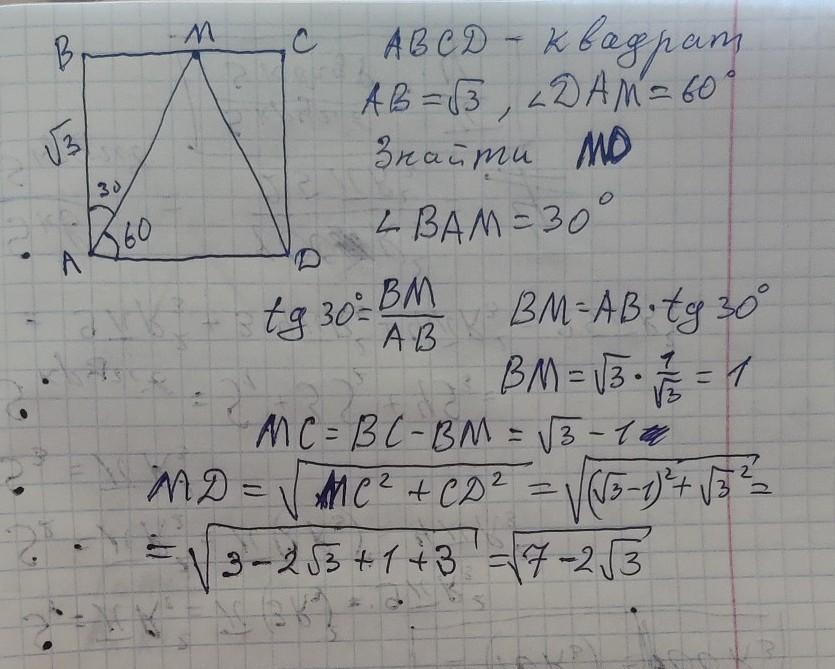 B M C
√3
30
60
A D
ABCD - квадрат
AB = √3 , ∠DAM = 60°
Знайти MD
∠ BAM = 30°
tg 30° = BM/AB BM = AB · tg 30°
BM = √3 · 1/√3 = 1
MC = BC - BM = √3 - 1
MD = √(MC² + CD²) = √((√3-1)² + √3²) =
= √(3 - 2√3 + 1 + 3) = √(7 - 2√3)